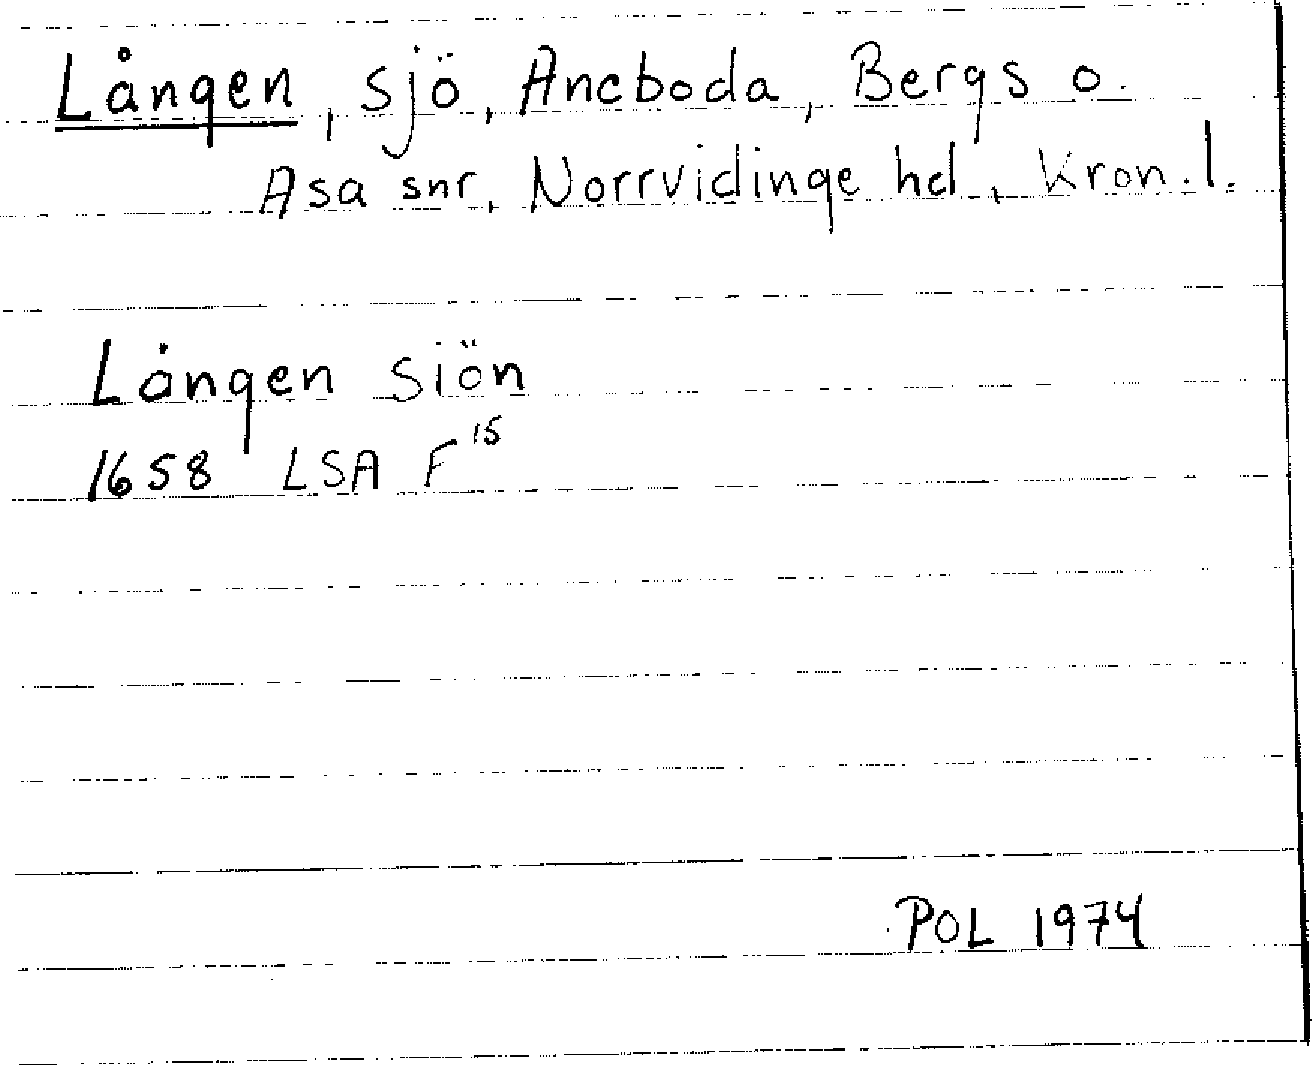 Lången, sjö, Aneboda, Bergs o.
Asa snr, Norrvidinge hd, Kron.l.
Lången siön
1658 LSA F15
POL 1974